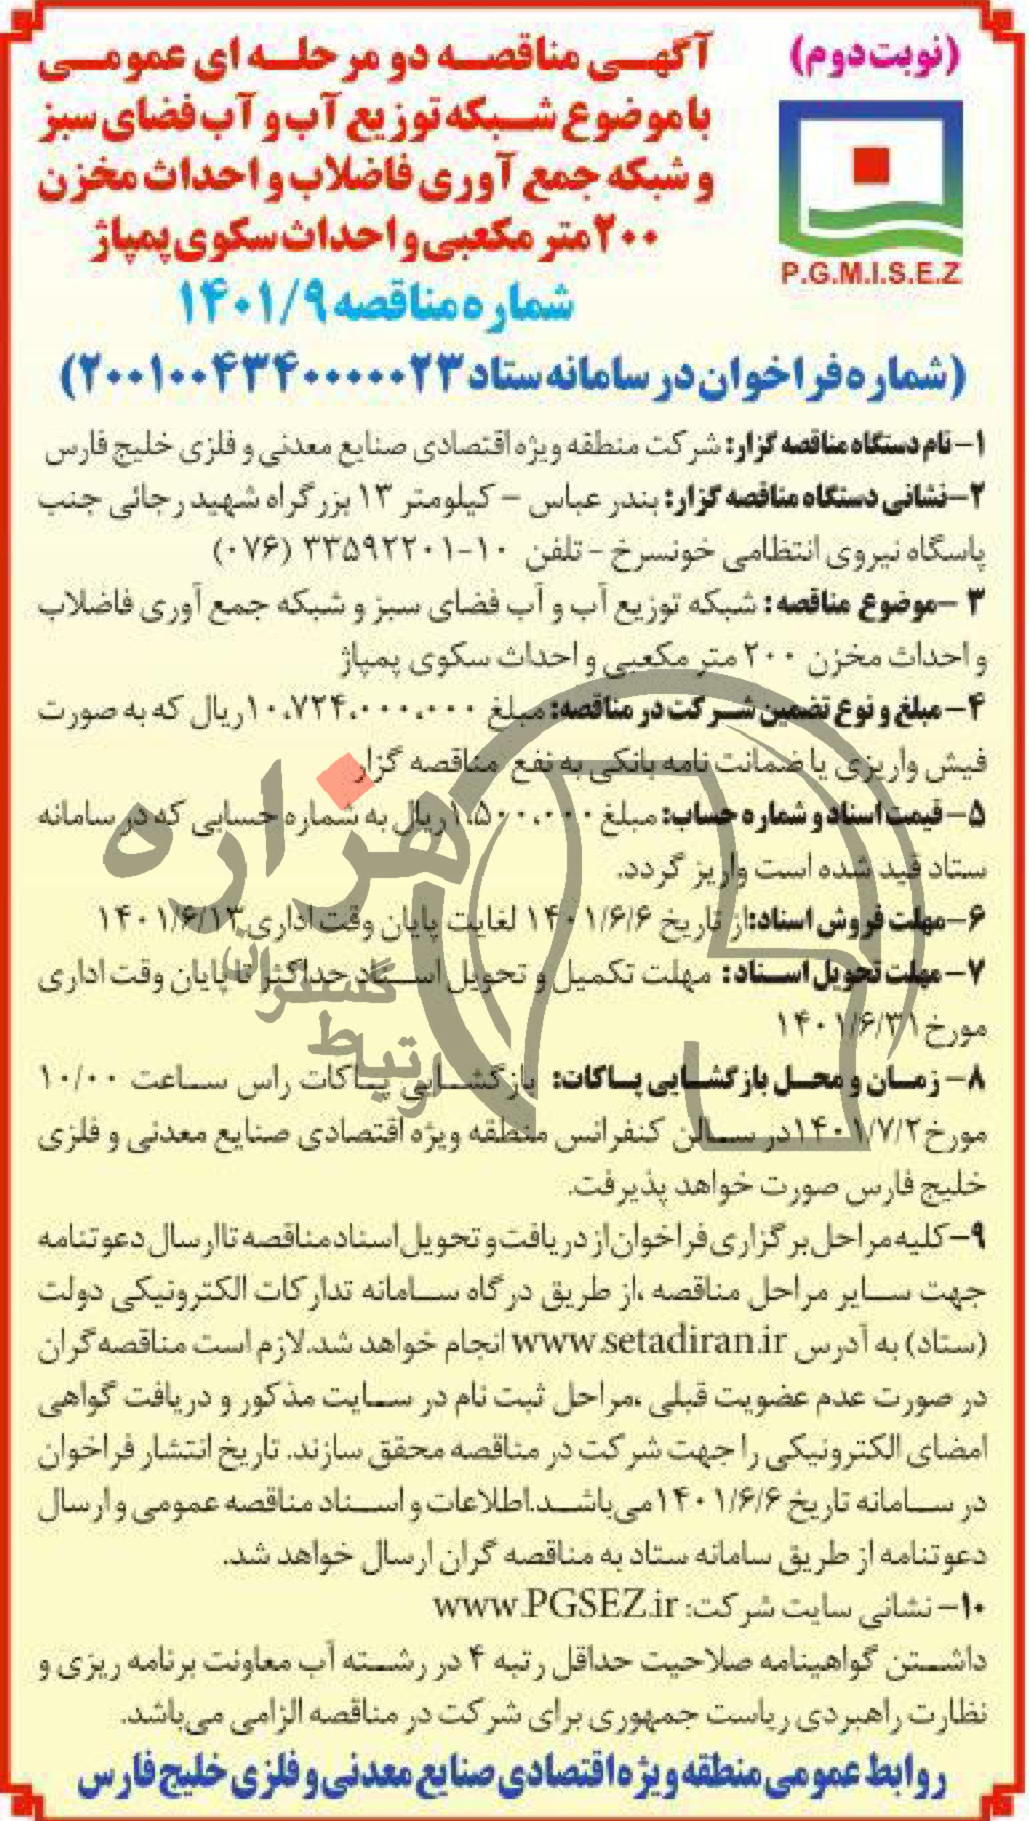 (نوبت دوم)
P.G.M.I.S.E.Z
آگهی مناقصه دو مرحله ای عمومی
با موضوع شبکه توزیع آب و آب فضای سبز
و شبکه جمع آوری فاضلاب و احداث مخزن
۲۰۰ متر مکعبی و احداث سکوی پمپاژ
شماره مناقصه ۱۴۰۱/۹
(شماره فراخوان در سامانه ستاد ۲۰۰۱۰۰۴۳۴۰۰۰۰۰۲۳)
۱- نام دستگاه مناقصه گزار: شرکت منطقه ویژه اقتصادی صنایع معدنی و فلزی خلیج فارس
۲- نشانی دستگاه مناقصه گزار: بندر عباس - کیلومتر ۱۳ بزرگراه شهید رجائی جنب
پاسگاه نیروی انتظامی خونسرخ - تلفن ۱۰-۳۳۵۹۲۲۰۱ (۰۷۶)
۳ - موضوع مناقصه: شبکه توزیع آب و آب فضای سبز و شبکه جمع آوری فاضلاب
و احداث مخزن ۲۰۰ متر مکعبی و احداث سکوی پمپاژ
۴- مبلغ و نوع تضمین شرکت در مناقصه: مبلغ ۱۰،۷۲۴،۰۰۰،۰۰۰ ریال که به صورت
فیش واریزی یا ضمانت نامه بانکی به نفع مناقصه گزار
۵- قیمت اسناد و شماره حساب: مبلغ ۱،۵۰۰،۰۰۰ ریال به شماره حسابی که در سامانه
ستاد قید شده است واریز گردد.
۶- مهلت فروش اسناد: از تاریخ ۱۴۰۱/۶/۶ لغایت پایان وقت اداری ۱۴۰۱/۶/۱۳
۷- مهلت تحویل اسناد: مهلت تکمیل و تحویل اسناد حداکثر تا پایان وقت اداری
مورخ ۱۴۰۱/۶/۳۱
۸- زمان و محل بازگشایی پاکات: بازگشایی پاکات راس ساعت ۱۰/۰۰
مورخ ۱۴۰۱/۷/۲ در سالن کنفرانس منطقه ویژه اقتصادی صنایع معدنی و فلزی
خلیج فارس صورت خواهد پذیرفت.
۹- کلیه مراحل برگزاری فراخوان از دریافت و تحویل اسناد مناقصه تا ارسال دعوتنامه
جهت سایر مراحل مناقصه ،از طریق درگاه سامانه تدارکات الکترونیکی دولت
(ستاد) به آدرس www.setadiran.ir انجام خواهد شد.لازم است مناقصه گران
در صورت عدم عضویت قبلی ،مراحل ثبت نام در سایت مذکور و دریافت گواهی
امضای الکترونیکی را جهت شرکت در مناقصه محقق سازند. تاریخ انتشار فراخوان
در سامانه تاریخ ۱۴۰۱/۶/۶ می باشد.اطلاعات و اسناد مناقصه عمومی و ارسال
دعوتنامه از طریق سامانه ستاد به مناقصه گران ارسال خواهد شد.
۱۰- نشانی سایت شرکت: www.PGSEZ.ir
داشتن گواهینامه صلاحیت حداقل رتبه ۴ در رشته آب معاونت برنامه ریزی و
نظارت راهبردی ریاست جمهوری برای شرکت در مناقصه الزامی می باشد.
روابط عمومی منطقه ویژه اقتصادی صنایع معدنی و فلزی خلیج فارس
هزاره
گستران
ارتباط